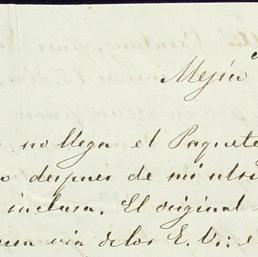 Mejía
no llega el Paquete
despues de mi ulti
inclusa. El original
via de los E. U.: e